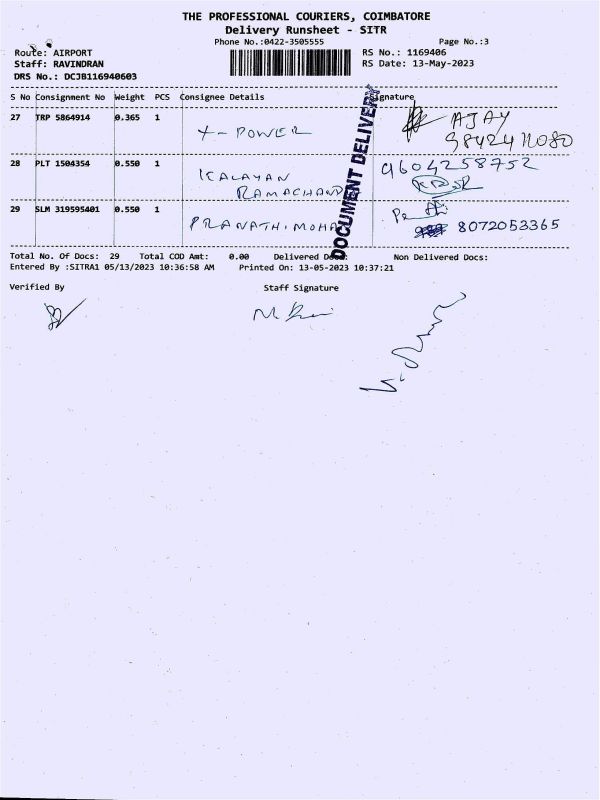 THE PROFESSIONAL COURIERS, COIMBATORE
Delivery Runsheet - SITR
Phone No.:0422-3505555 Page No.:3
Route: AIRPORT RS No.: 1169406
Staff: RAVINDRAN RS Date: 13-May-2023
DRS No.: DCJB116940603
S No Consignment No Weight PCS Consignee Details Signature
27 TRP 5864914 0.365 1 X-POWER AJAY
9842411080
28 PLT 1504354 0.550 1 KALAYAN 9604258752
RAMACHAND
29 SLM 319595401 0.550 1 PRANATHI.MOHA 8072053365
DOCUMENT DELIVERY
Total No. Of Docs: 29 Total COD Amt: 0.00 Delivered Docs: Non Delivered Docs:
Entered By :SITRA1 05/13/2023 10:36:58 AM Printed On: 13-05-2023 10:37:21
Verified By Staff Signature